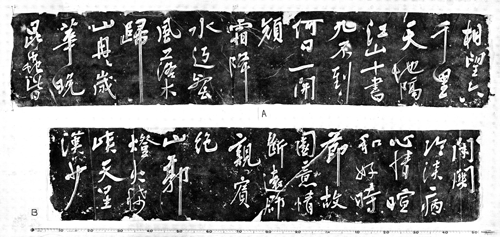 相望六
千里
天地隔
江山十書
九不到
何日一開
顏
霜降
水返壑
風落木
歸
山冉冉歲
華晚
昆蟲皆
A
閉關
冷淡病
心情暄
和好時
節故
園音信
斷遠郡
親賓
絕
山郭
燈火稀
峽天星
漢少
B